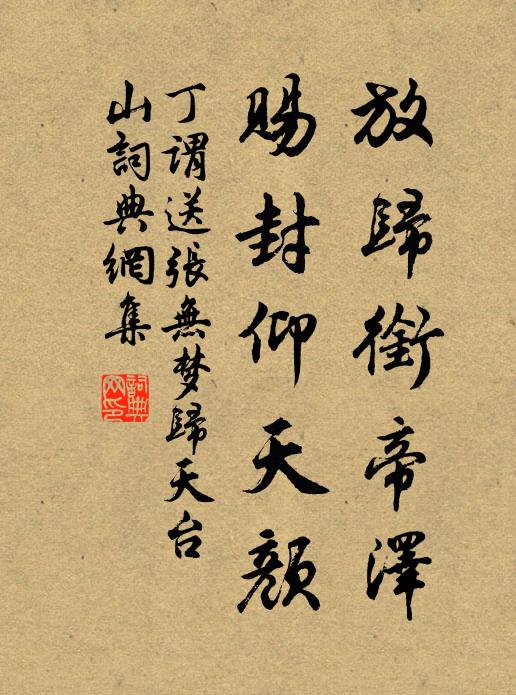 放歸銜帝澤
賜封仰天顏
丁謂送張無梦歸天台
山詞典網集
詞典網印